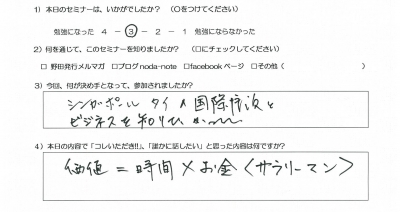 1) 本日のセミナーは、いかがでしたか? (〇をつけてください)
勉強になった 4 － ③ － 2 － 1 勉強にならなかった
2) 何を通じて、このセミナーを知りましたか? (□にチェックしてください)
□ 野田発行メルマガ □ブログnoda-note □facebookページ □その他 (
3) 今回、何が決め手となって、参加されましたか?
シンガポール タイ
ビジネスを知りたい
4) 本日の内容で「コレいただき!!」、「誰かに話したい」と思った内容は何ですか?
価値 = 時間 × お金 〈サラリーマン〉